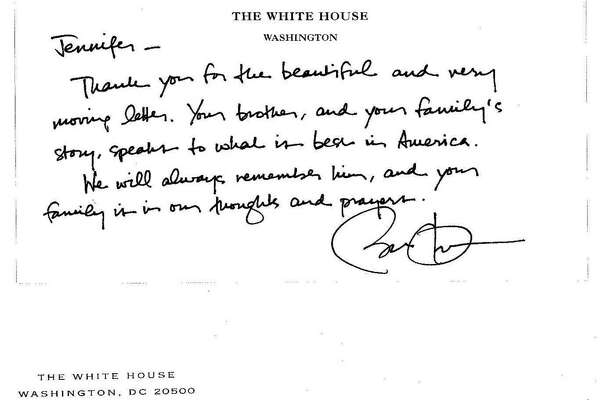 THE WHITE HOUSE
WASHINGTON
Jennifer –
Thank you for the beautiful and very
moving letter. Your brother, and your family's
story, speaks to what is best in America.
We will always remember him, and your
family is in our thoughts and prayers.
THE WHITE HOUSE
WASHINGTON, DC 20500